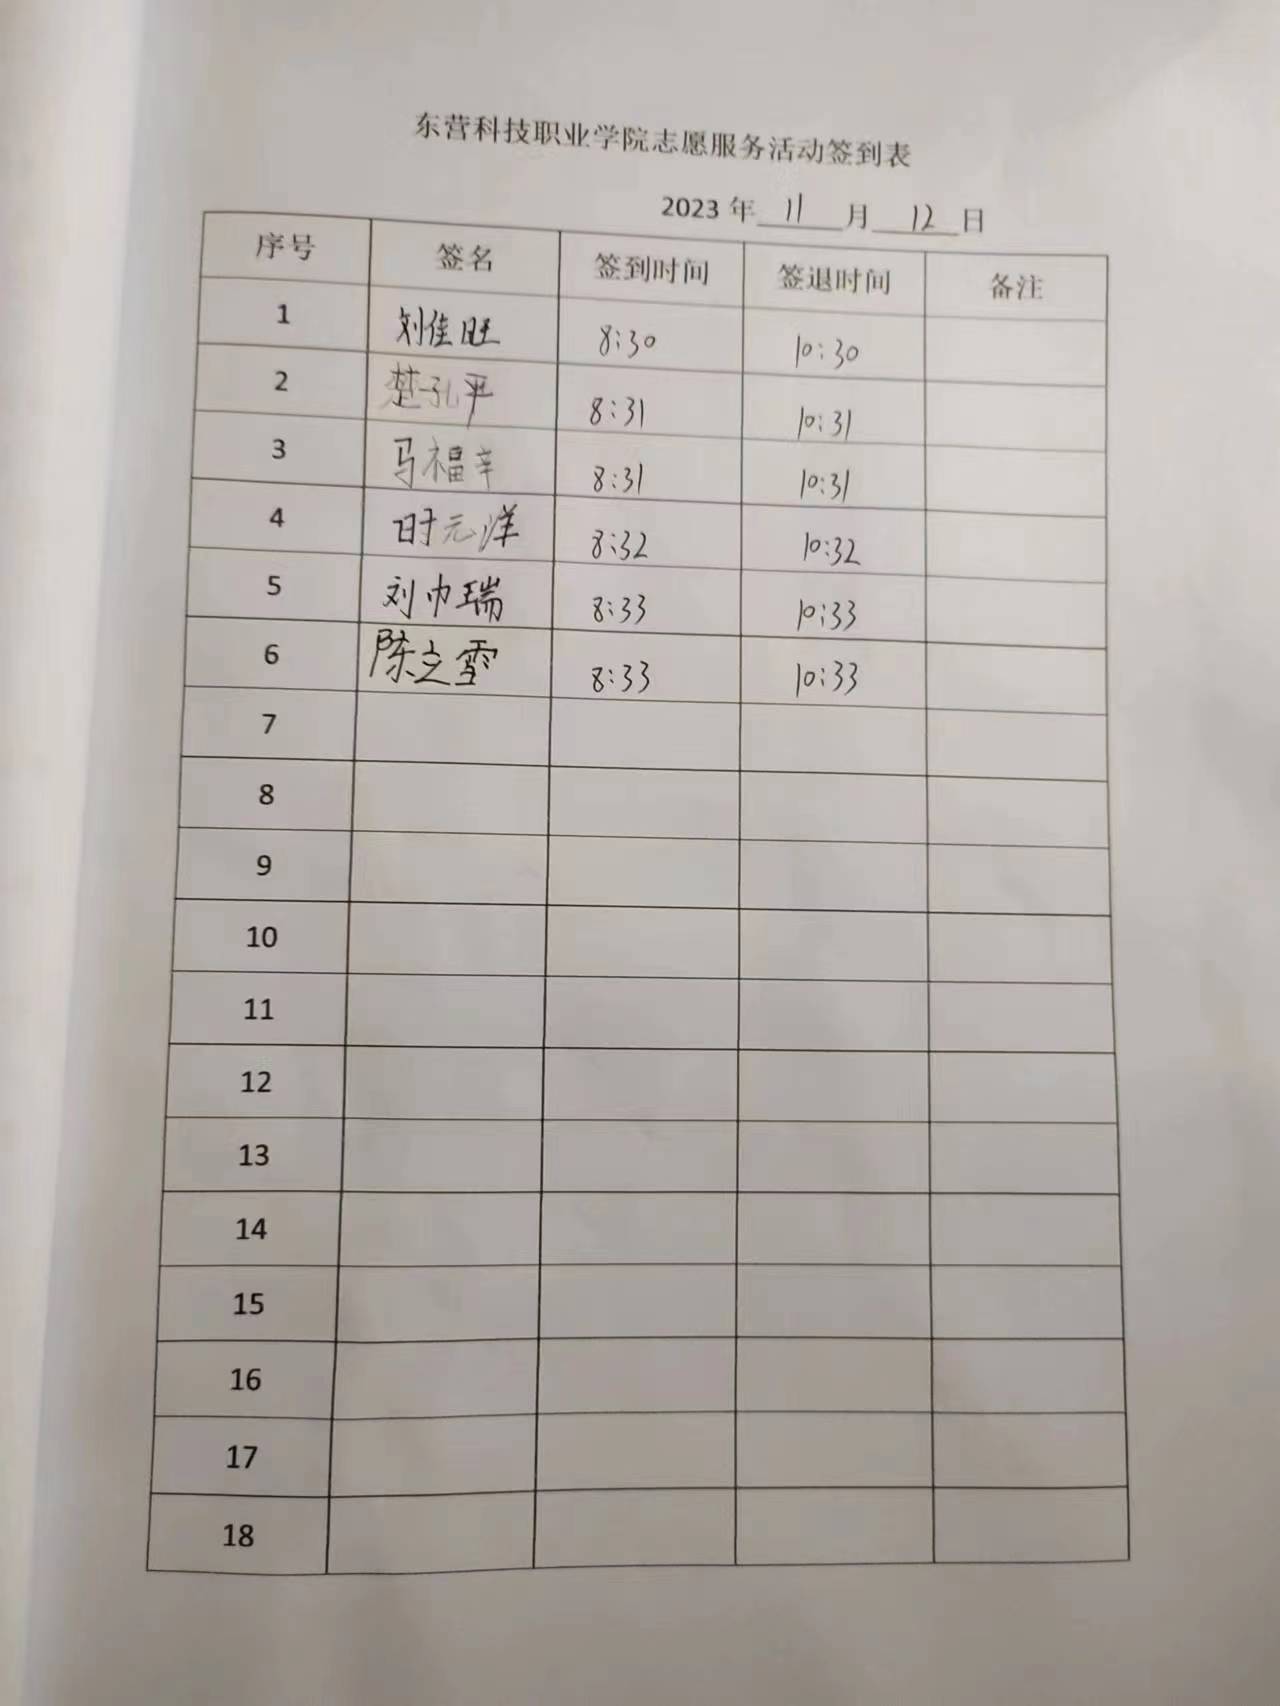 东营科技职业学院志愿服务活动签到表
2023 年 11 月 12 日
序号 签名 签到时间 签退时间 备注
1 刘佳旺 8:30 10:30
2 楚孔严 8:31 10:31
3 马福辛 8:31 10:31
4 时元洋 8:32 10:32
5 刘巾瑞 8:33 10:33
6 陈之雪 8:33 10:33
7
8
9
10
11
12
13
14
15
16
17
18